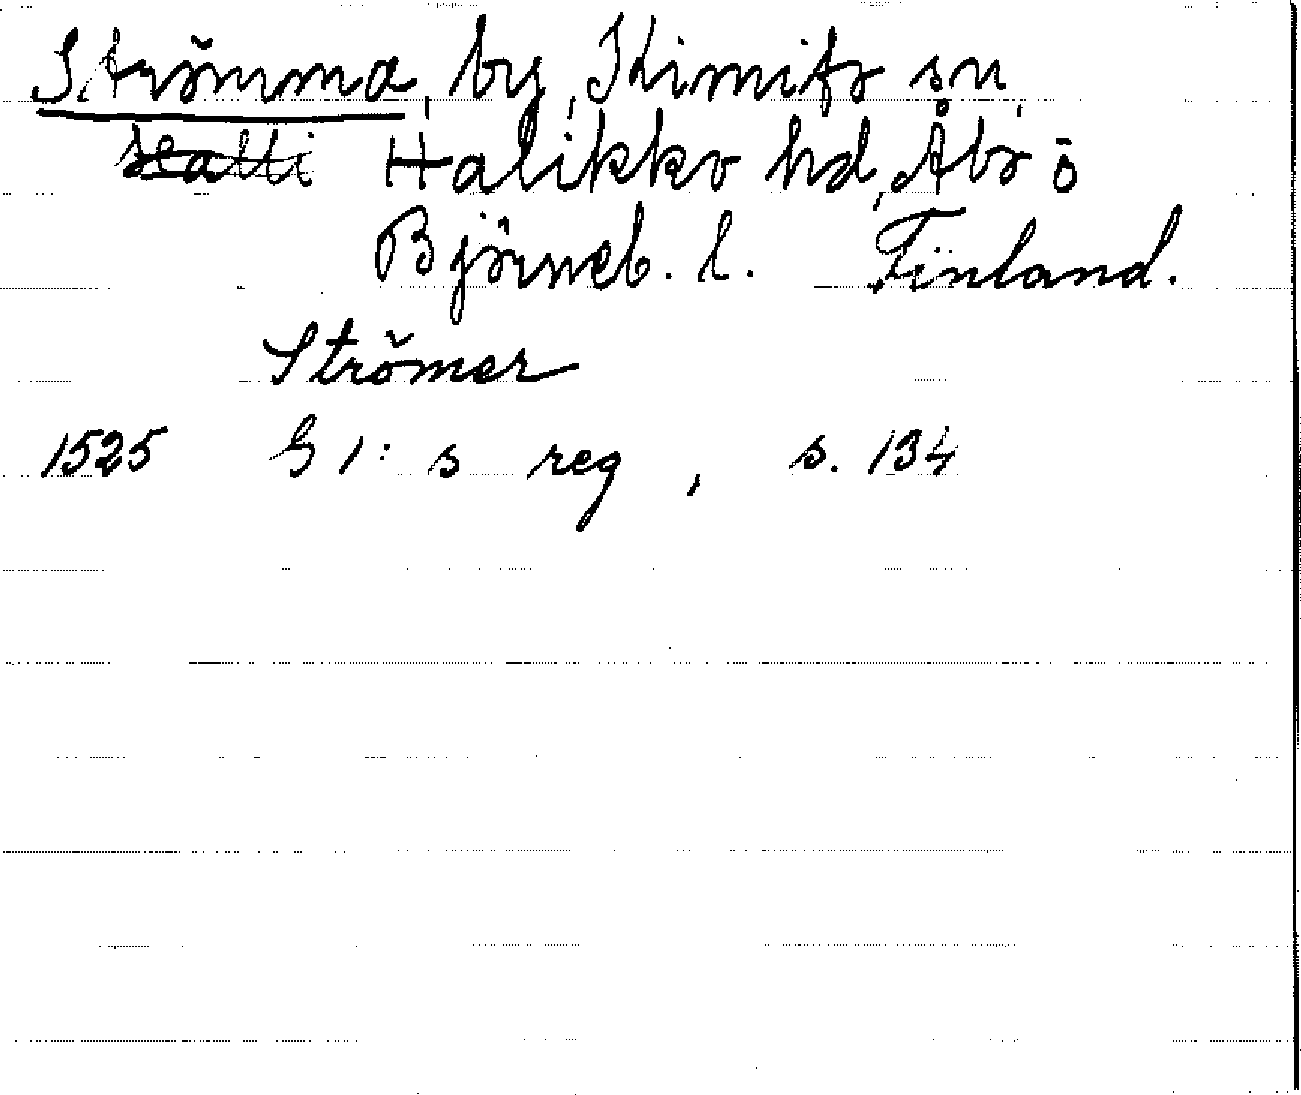 Strömma, by, Kimito sn,
Halikko hd, Åbo o
Björneb. l. Finland.
Strömer
1525 G 1:s reg, s. 134